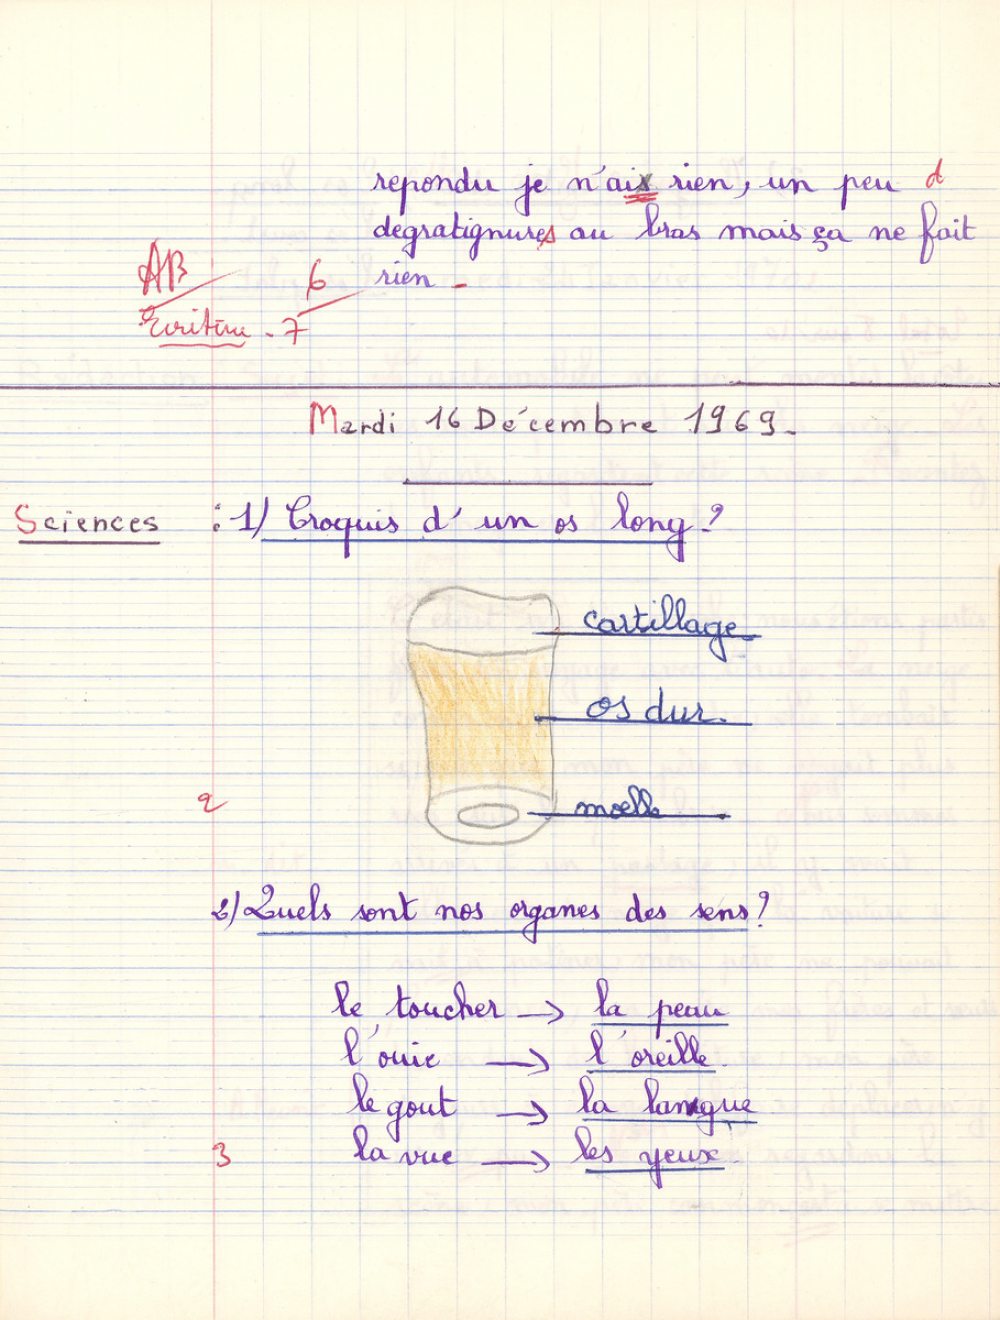 repondu je n'aix rien, un peu d
degratignures au bras mais ça ne fait
AB 6 rien -
Ecriture - 7
Mardi 16 Décembre 1969.
Sciences : 1) Croquis d'un os long?
cartillage
os dur.
2 moelle
2) Quels sont nos organes des sens?
le toucher → la peau
l'ouie → l'oreille
le gout → la langue
3 la vue → les yeux.